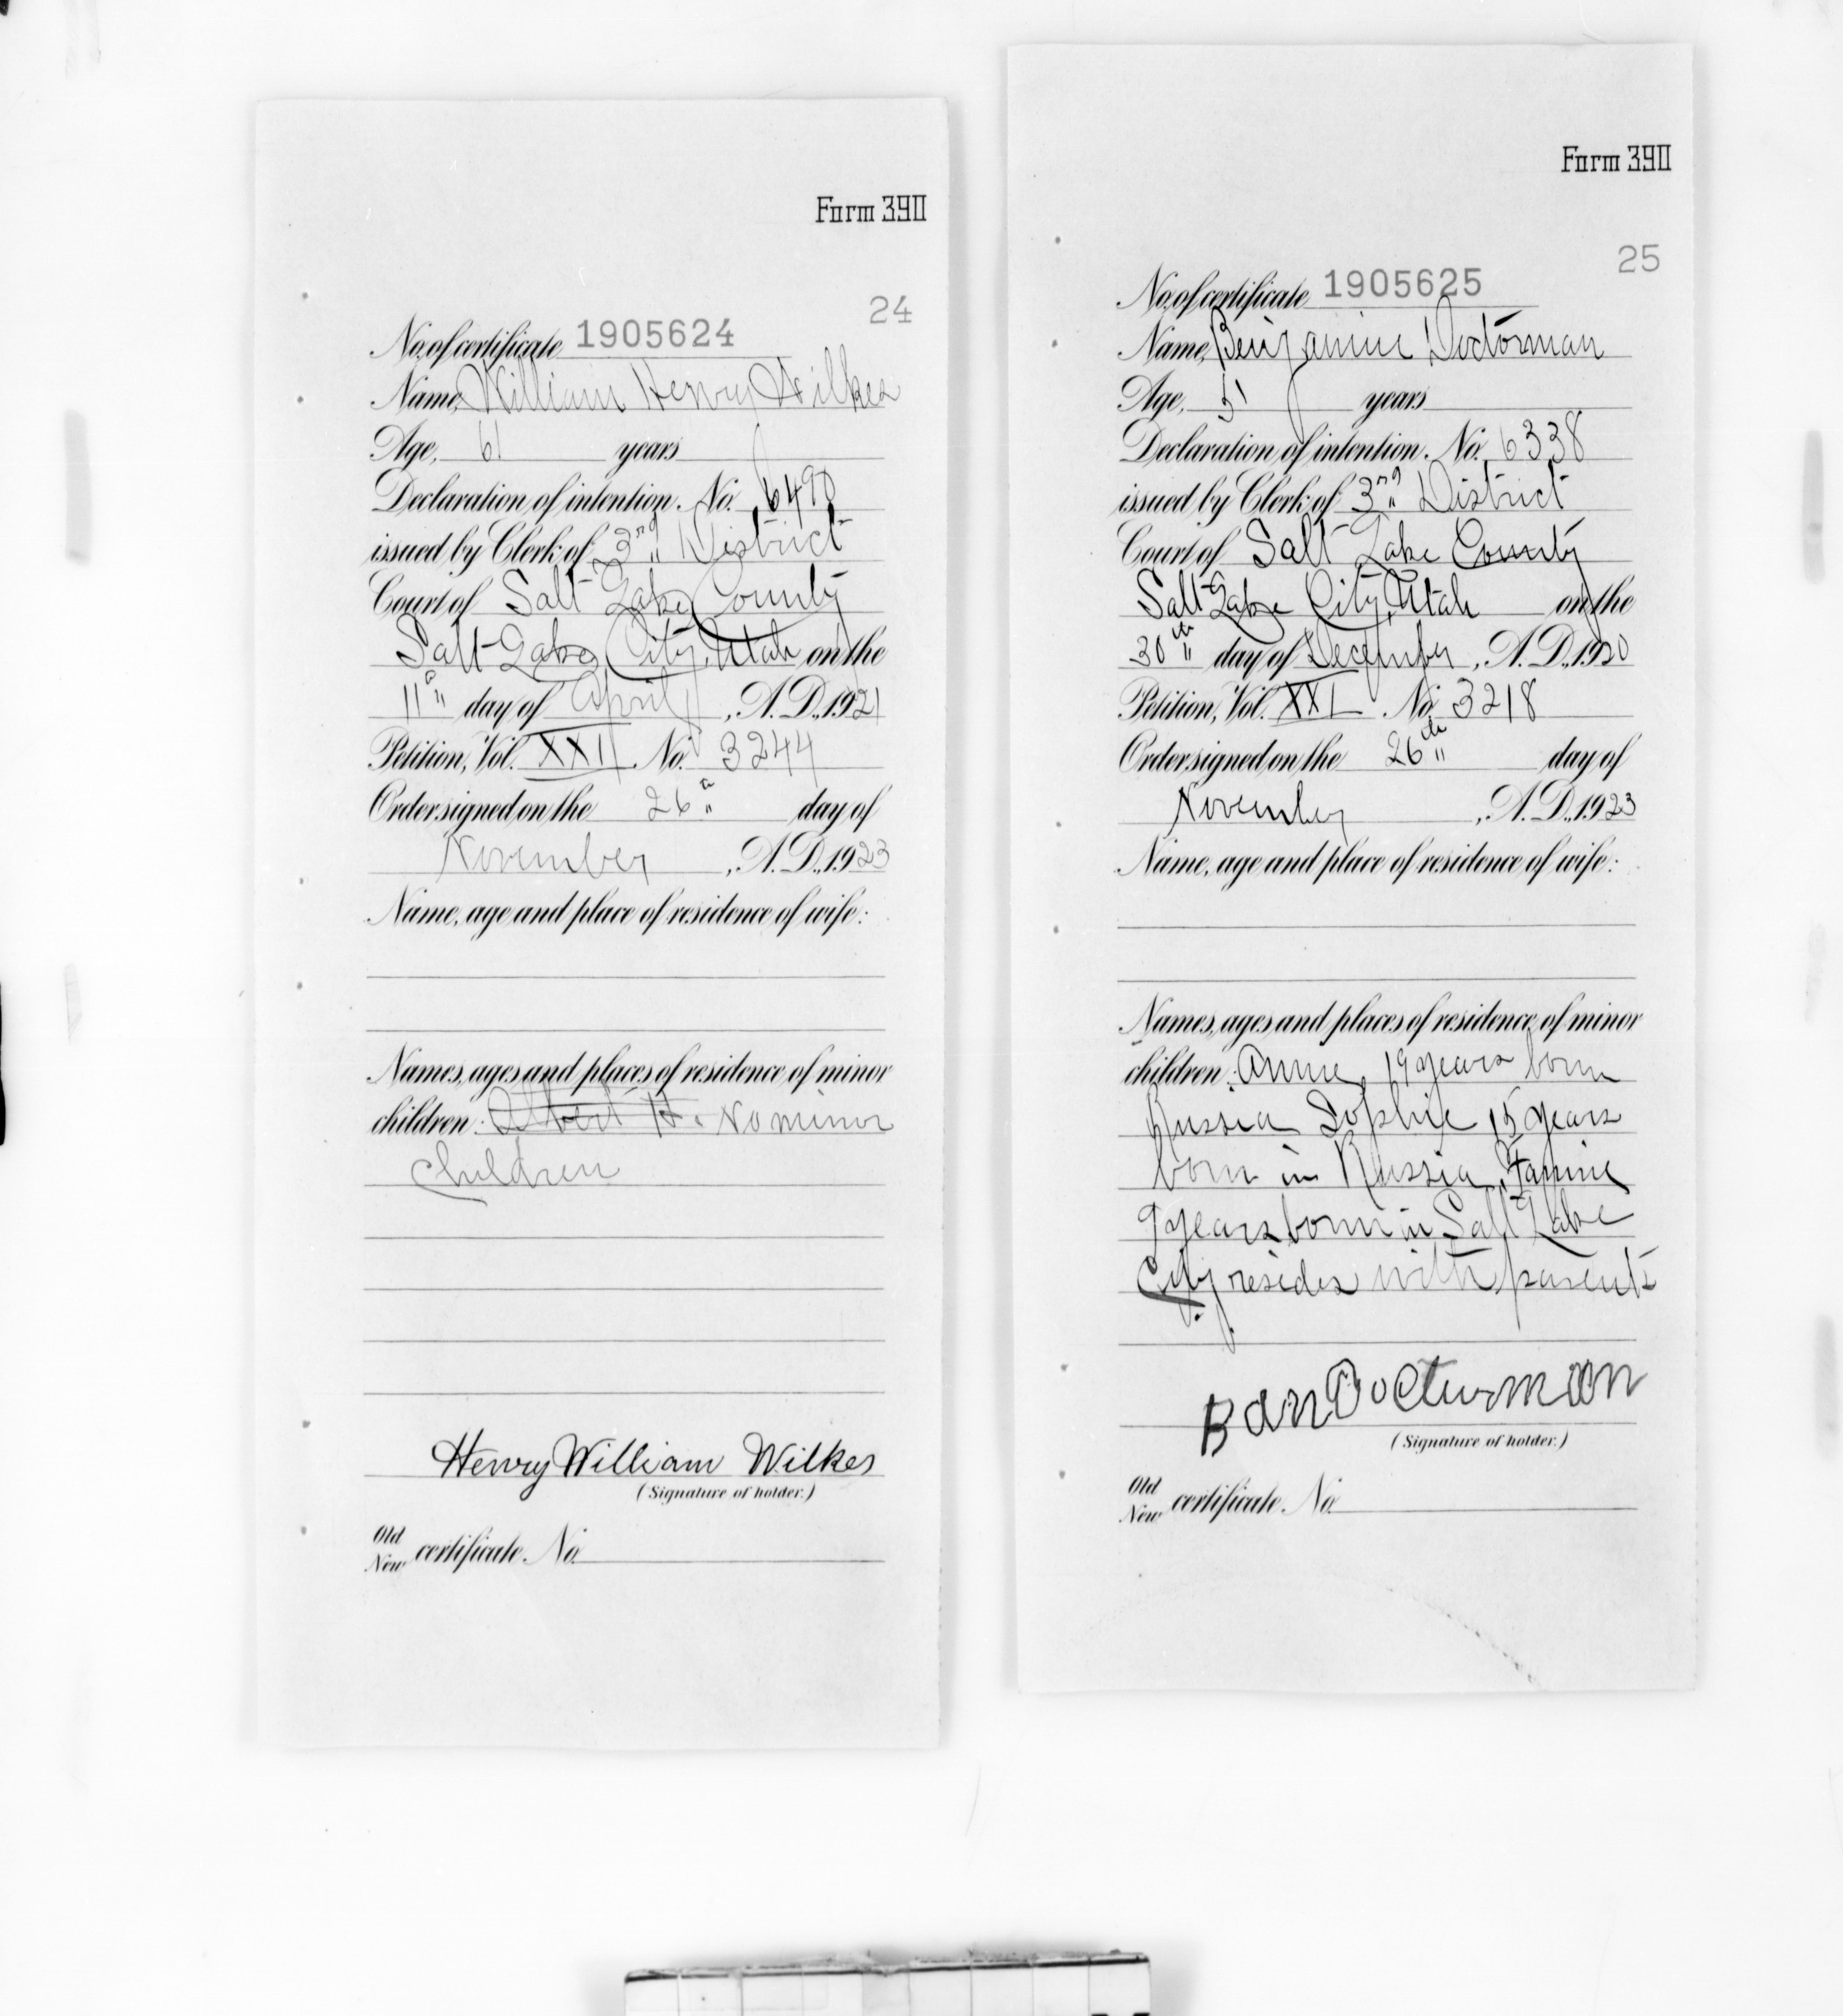 Form 390
24
No. of certificate 1905624
Name, William Henry Wilkes
Age, 61 years
Declaration of intention. No. 6490
issued by Clerk of 3rd District
Court of Salt Lake County
Salt Lake City, Utah on the
11th day of April, A.D., 1921
Petition, Vol. XXI No. 3244
Order signed on the 26th day of
November, A.D., 1923
Name, age and place of residence of wife:
Names, ages and places of residence of minor
children: Albert H. No minor
children
Henry William Wilkes
(Signature of holder.)
Old
New certificate No.
Form 390
25
No. of certificate 1905625
Name, Benjamine Doctorman
Age, 51 years
Declaration of intention. No. 6338
issued by Clerk of 3rd District
Court of Salt Lake County
Salt Lake City, Utah on the
30th day of December, A.D., 1920
Petition, Vol. XXI No. 3218
Order signed on the 26th day of
November, A.D., 1923
Name, age and place of residence of wife:
Names, ages and places of residence of minor
children: Annie, 19 years born
Russia Sophie 15 years
born in Russia, Fannie
9 years born in Salt Lake
City resides with parents
(Signature of holder.)
Old
New certificate No.